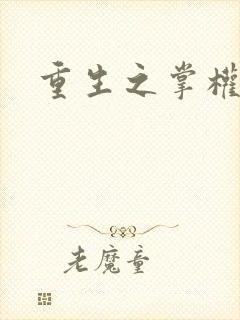 重生之掌權
老魔童